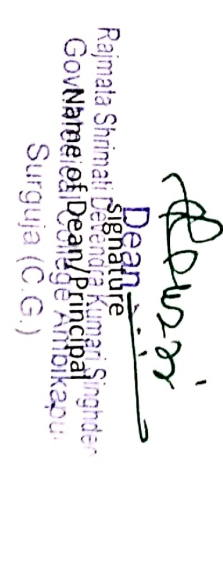 Dean
signature
Rajmata Shrimati Devendra Kumari Singhdeo
Name of Dean/Principal
Govt. Medical College Ambikapur
Surguja (C.G.)